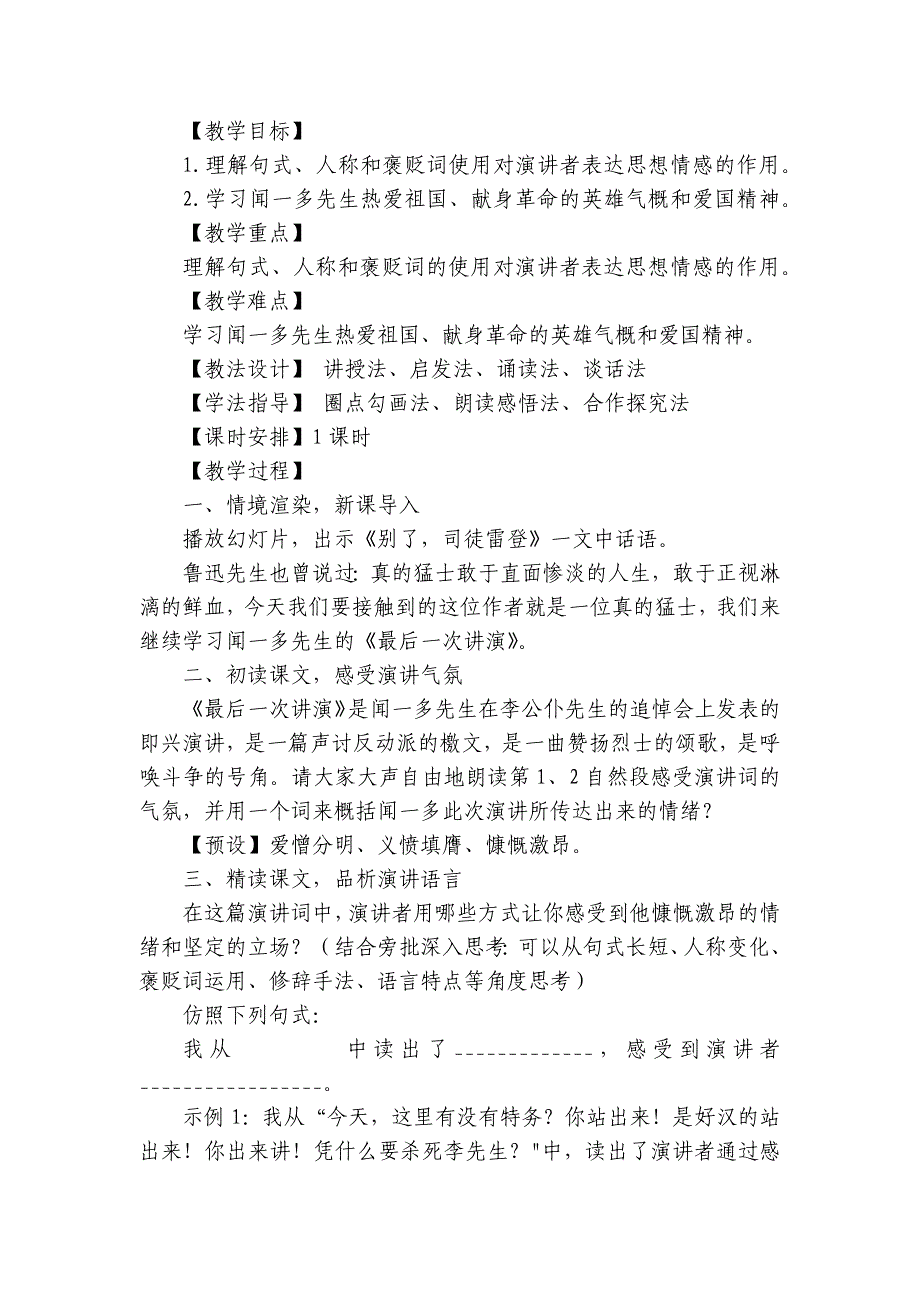 【教学目标】
1.理解句式、人称和褒贬词使用对演讲者表达思想情感的作用。
2.学习闻一多先生热爱祖国、献身革命的英雄气概和爱国精神。
【教学重点】
理解句式、人称和褒贬词的使用对演讲者表达思想情感的作用。
【教学难点】
学习闻一多先生热爱祖国、献身革命的英雄气概和爱国精神。
【教法设计】 讲授法、启发法、诵读法、谈话法
【学法指导】 圈点勾画法、朗读感悟法、合作探究法
【课时安排】1 课时
【教学过程】
一、情境渲染，新课导入
播放幻灯片，出示《别了，司徒雷登》一文中话语。
鲁迅先生也曾说过：真的猛士敢于直面惨淡的人生，敢于正视淋
漓的鲜血，今天我们要接触到的这位作者就是一位真的猛士，我们来
继续学习闻一多先生的《最后一次讲演》。
二、初读课文，感受演讲气氛
《最后一次讲演》是闻一多先生在李公仆先生的追悼会上发表的
即兴演讲，是一篇声讨反动派的檄文，是一曲赞扬烈士的颂歌，是呼
唤斗争的号角。请大家大声自由地朗读第 1、2 自然段感受演讲词的
气氛，并用一个词来概括闻一多此次演讲所传达出来的情绪？
【预设】爱憎分明、义愤填膺、慷慨激昂。
三、精读课文，品析演讲语言
在这篇演讲词中，演讲者用哪些方式让你感受到他慷慨激昂的情
绪和坚定的立场？（结合旁批深入思考：可以从句式长短、人称变化、
褒贬词运用、修辞手法、语言特点等角度思考）
仿照下列句式：
我从 中读出了_____________，感受到演讲者
_________________。
示例 1：我从“今天，这里有没有特务？你站出来！是好汉的站
出来！你出来讲！凭什么要杀死李先生？"中，读出了演讲者通过感